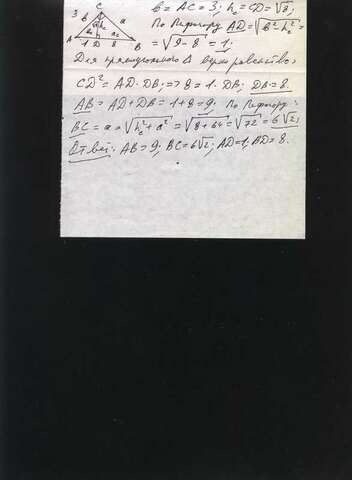 C
3 b a
h_c
A B
1 D 8
b = AC = 3; h_c = CD = √8;
По Пифагору AD = √(b² - h_c²) =
= √(9-8) = 1;
Для прямоугольного Δ верно равенство:
CD² = AD · DB; => 8 = 1 · DB; DB = 8.
AB = AD + DB = 1 + 8 = 9; По Пифагору:
BC = a = √(h_c² + a_c²) = √(8+64) = √72 = 6√2;
Ответ: AB = 9; BC = 6√2; AD = 1; BD = 8.